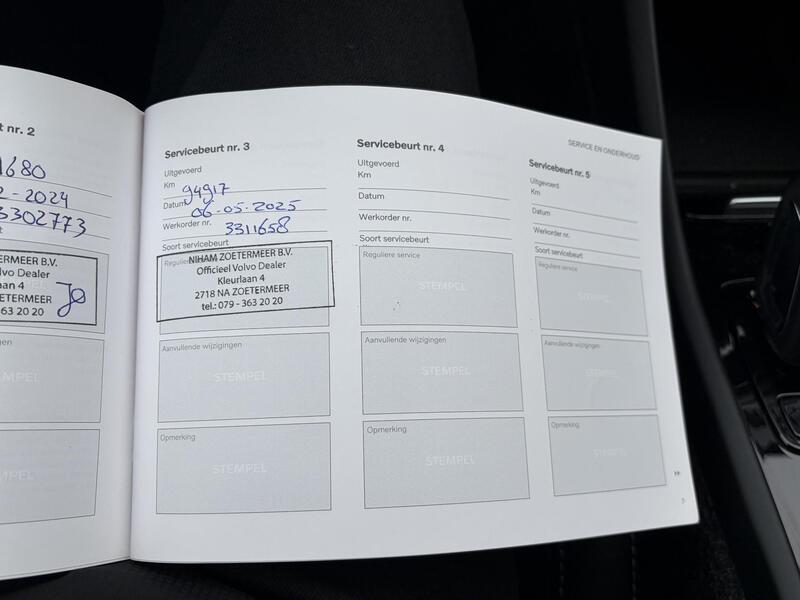 t nr. 2
1680
2-2024
3302773
t
ERMEER B.V.
lvo Dealer
aan 4
ETERMEER
63 20 20
gen
STEMPEL
STEMPEL
Servicebeurt nr. 3
Uitgevoerd
Km 94917
Datum 06-05-2025
Werkorder nr. 3311658
Soort servicebeurt
Reguliere
NIHAM ZOETERMEER B.V.
Officieel Volvo Dealer
Kleurlaan 4
2718 NA ZOETERMEER
tel.: 079 - 363 20 20
Aanvullende wijzigingen
STEMPEL
Opmerking
STEMPEL
Servicebeurt nr. 4
Uitgevoerd
Km
Datum
Werkorder nr.
Soort servicebeurt
Reguliere service
STEMPEL
Aanvullende wijzigingen
STEMPEL
Opmerking
STEMPEL
SERVICE EN ONDERHOUD
Servicebeurt nr. 5
Uitgevoerd
Km
Datum
Werkorder nr.
Soort servicebeurt
Reguliere service
STEMPEL
Aanvullende wijzigingen
STEMPEL
Opmerking
STEMPEL
7